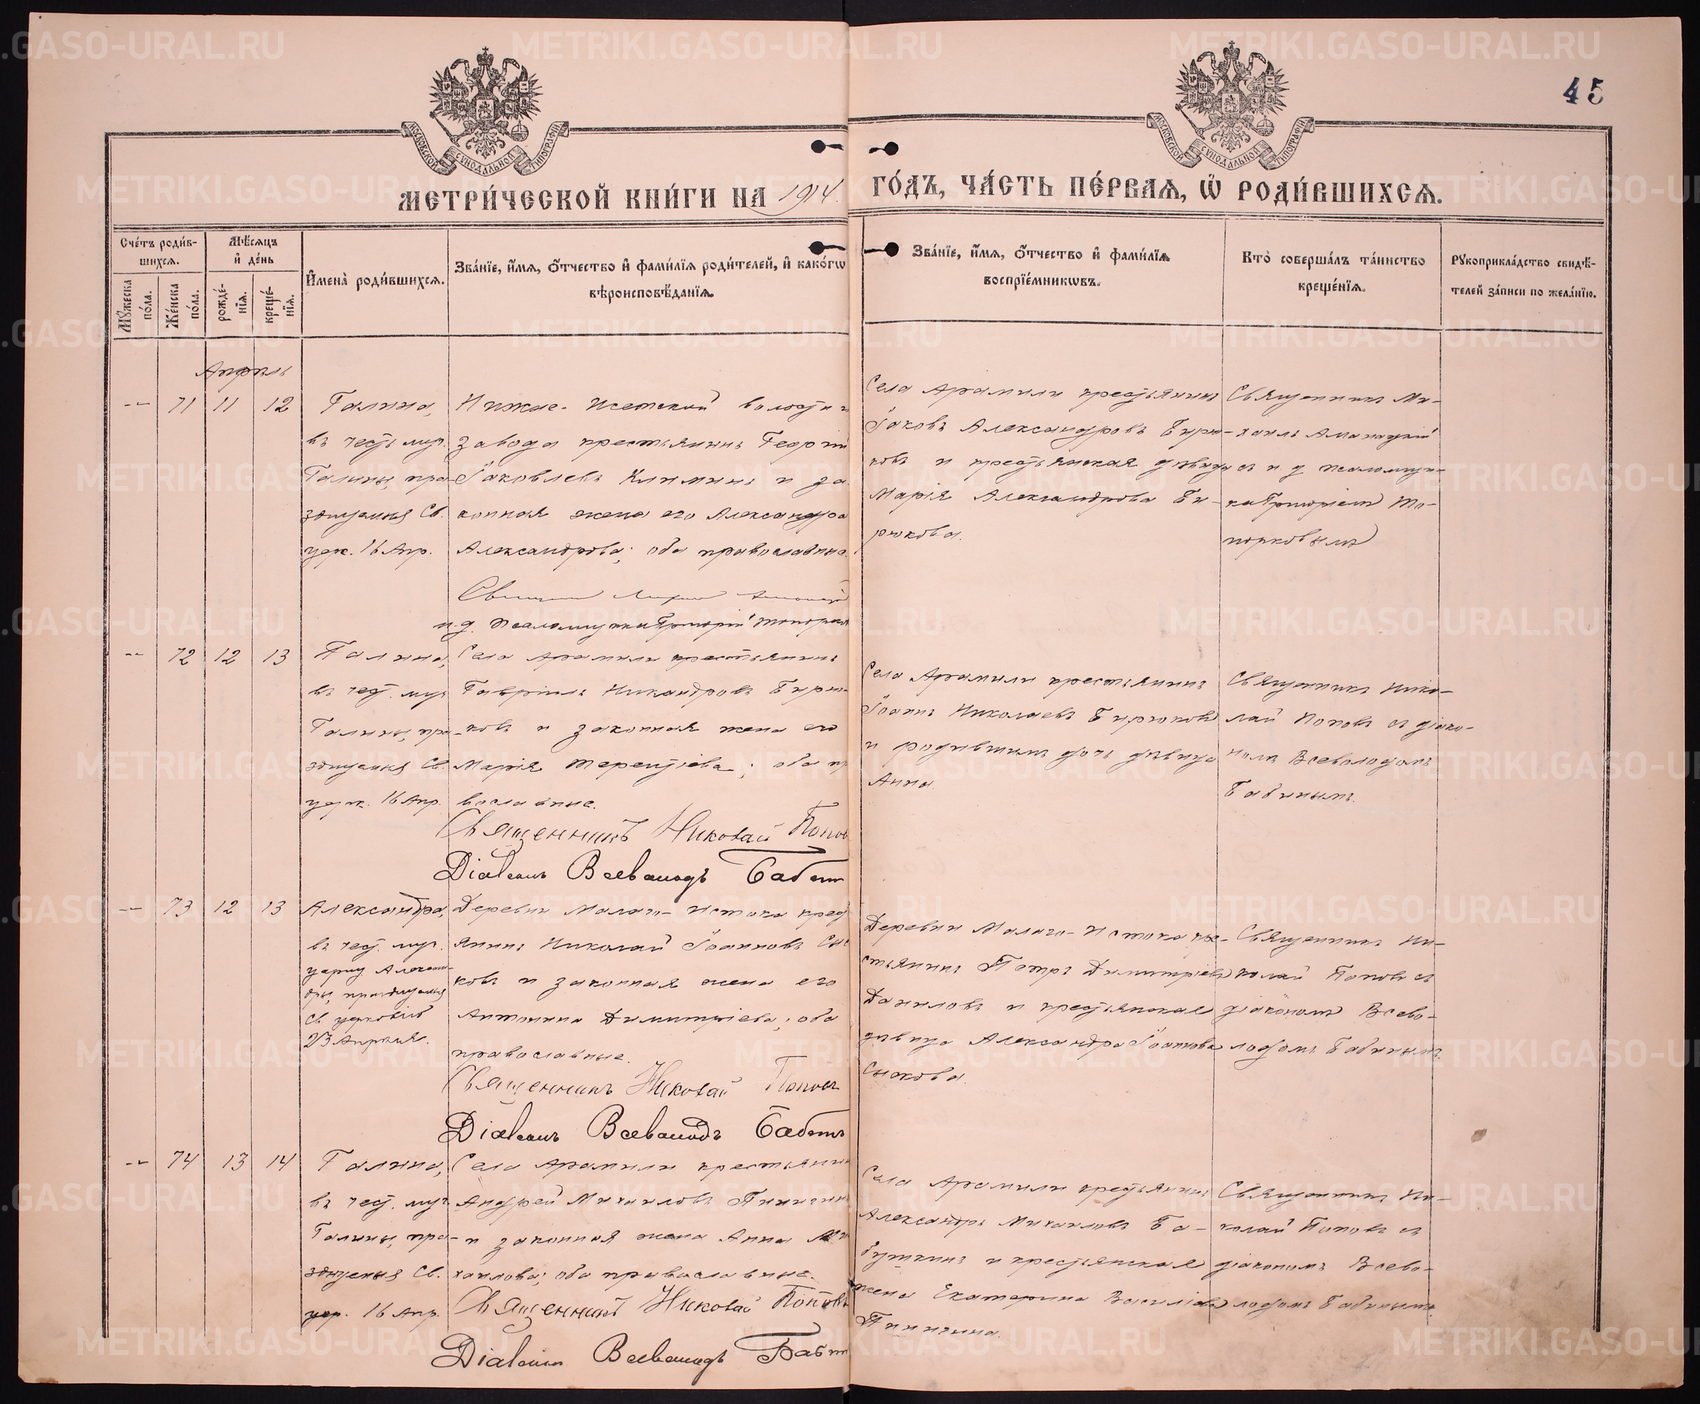 45
МОСКОВСКОЙ СѴНОДАЛЬНОЙ ТИПОГРАФІИ
МОСКОВСКОЙ СѴНОДАЛЬНОЙ ТИПОГРАФІИ
МЕТРИ́ЧЕСКОЙ КНИ́ГИ НА 1914 ГО́ДЪ, ЧА́СТЬ ПЕ́РВАЯ, Ѡ҆ РОДИ́ВШИХСѦ.
Сче́тъ роди́в-
шихсѧ.
Мꙋжеска по́ла.
Же́нска по́ла.
Мѣ́сѧцъ
и҆ де́нь
рожде́-
нїѧ.
креще́-
нїѧ.
И҆мена̀ роди́вшихсѧ.
Зва́нїе, и҆́мѧ, ѻ҆́тчество и҆ фами́лїѧ роди́телей, и҆ како́гѡ
вѣроисповѣ́данїѧ.
Зва́нїе, и҆́мѧ, ѻ҆́тчество и҆ фами́лїѧ
воспрїе́мникѡвъ.
Кто̀ соверша́лъ та́инство
креще́нїѧ.
Рꙋкоприкла́дство свидѣ́-
телей за́писи по жела́нїю.
Апрѣль
71 11 12
Галина,
въ честь муч.
Галины, пра-
зднуемыя Св.
церк. 16 Апр.
Нижне-Исетской волости и
завода крестьянинъ Георгій
Іаковлевъ Климинъ и за
конная жена его Александра
Александрова; оба православные.
и.д. Псаломщика Григорій Топорков
Села Арамили крестьянинъ
Іаковъ Александровъ Бирю-
ковъ и крестьянская дѣвица
Марія Александрова Би-
рюкова.
Священникъ Ми-
хаилъ
съ и д псаломщи-
ка Григоріемъ То-
порковымъ
72 12 13
Галина,
въ чест. муч.
Галины, пра-
зднуемыя Св.
церк. 16 Апр.
Села Арамили крестьянинъ
Гавріилъ Никандровъ Бирю-
ковъ и законная жена его
Марія Терентіева; оба пра
вославные.
Священникъ Николай Попов
Діаконъ Всеволодъ Бабин
Села Арамили крестьянинъ
Іоаннъ Николаевъ Бирюковъ
и родившихъ дочь дѣвица
Анна.
Священникъ Нико-
лай Поповъ съ діако-
номъ Всеволодомъ
Бабинымъ.
73 12 13
Александра,
въ чест. муч.
царицы Алексан-
дры, празднуемыя
Св церковію
23 Апрѣля.
Деревни Малаго-Истока крест
янинъ Николай Іоанновъ Сыс
ковъ и законная жена его
Антонина Димитріева; оба
православные.
Священникъ Николай Поповъ
Діаконъ Всеволодъ Бабинъ
Деревни Малаго-Истока кре-
стьянинъ Петръ Димитріевъ
Даниловъ и крестьянская
дѣвица Александра Іоаннова
Священникъ Ни-
колай Поповъ съ
діакономъ Всево-
лодомъ Бабинымъ
74 13 14
Галина,
въ чест. муч.
Галины, пра-
зднуемыя Св.
цер. 16 Апр.
Села Арамили крестьянин
Андрей Михаиловъ Пиничин
и законная жена Анна Ми
хаилова; оба православные.
Священникъ Николай Поповъ
Діаконъ Всеволодъ Бабин
Села Арамили крестьянинъ
Александръ Михаиловъ Ба-
бушкинъ и крестьянская
жена Екатерина Василіева
Пиничина.
Священникъ Ни-
колай Поповъ съ
діакономъ Всево-
лодомъ Бабинымъ.
METRIKI.GASO-URAL.RU